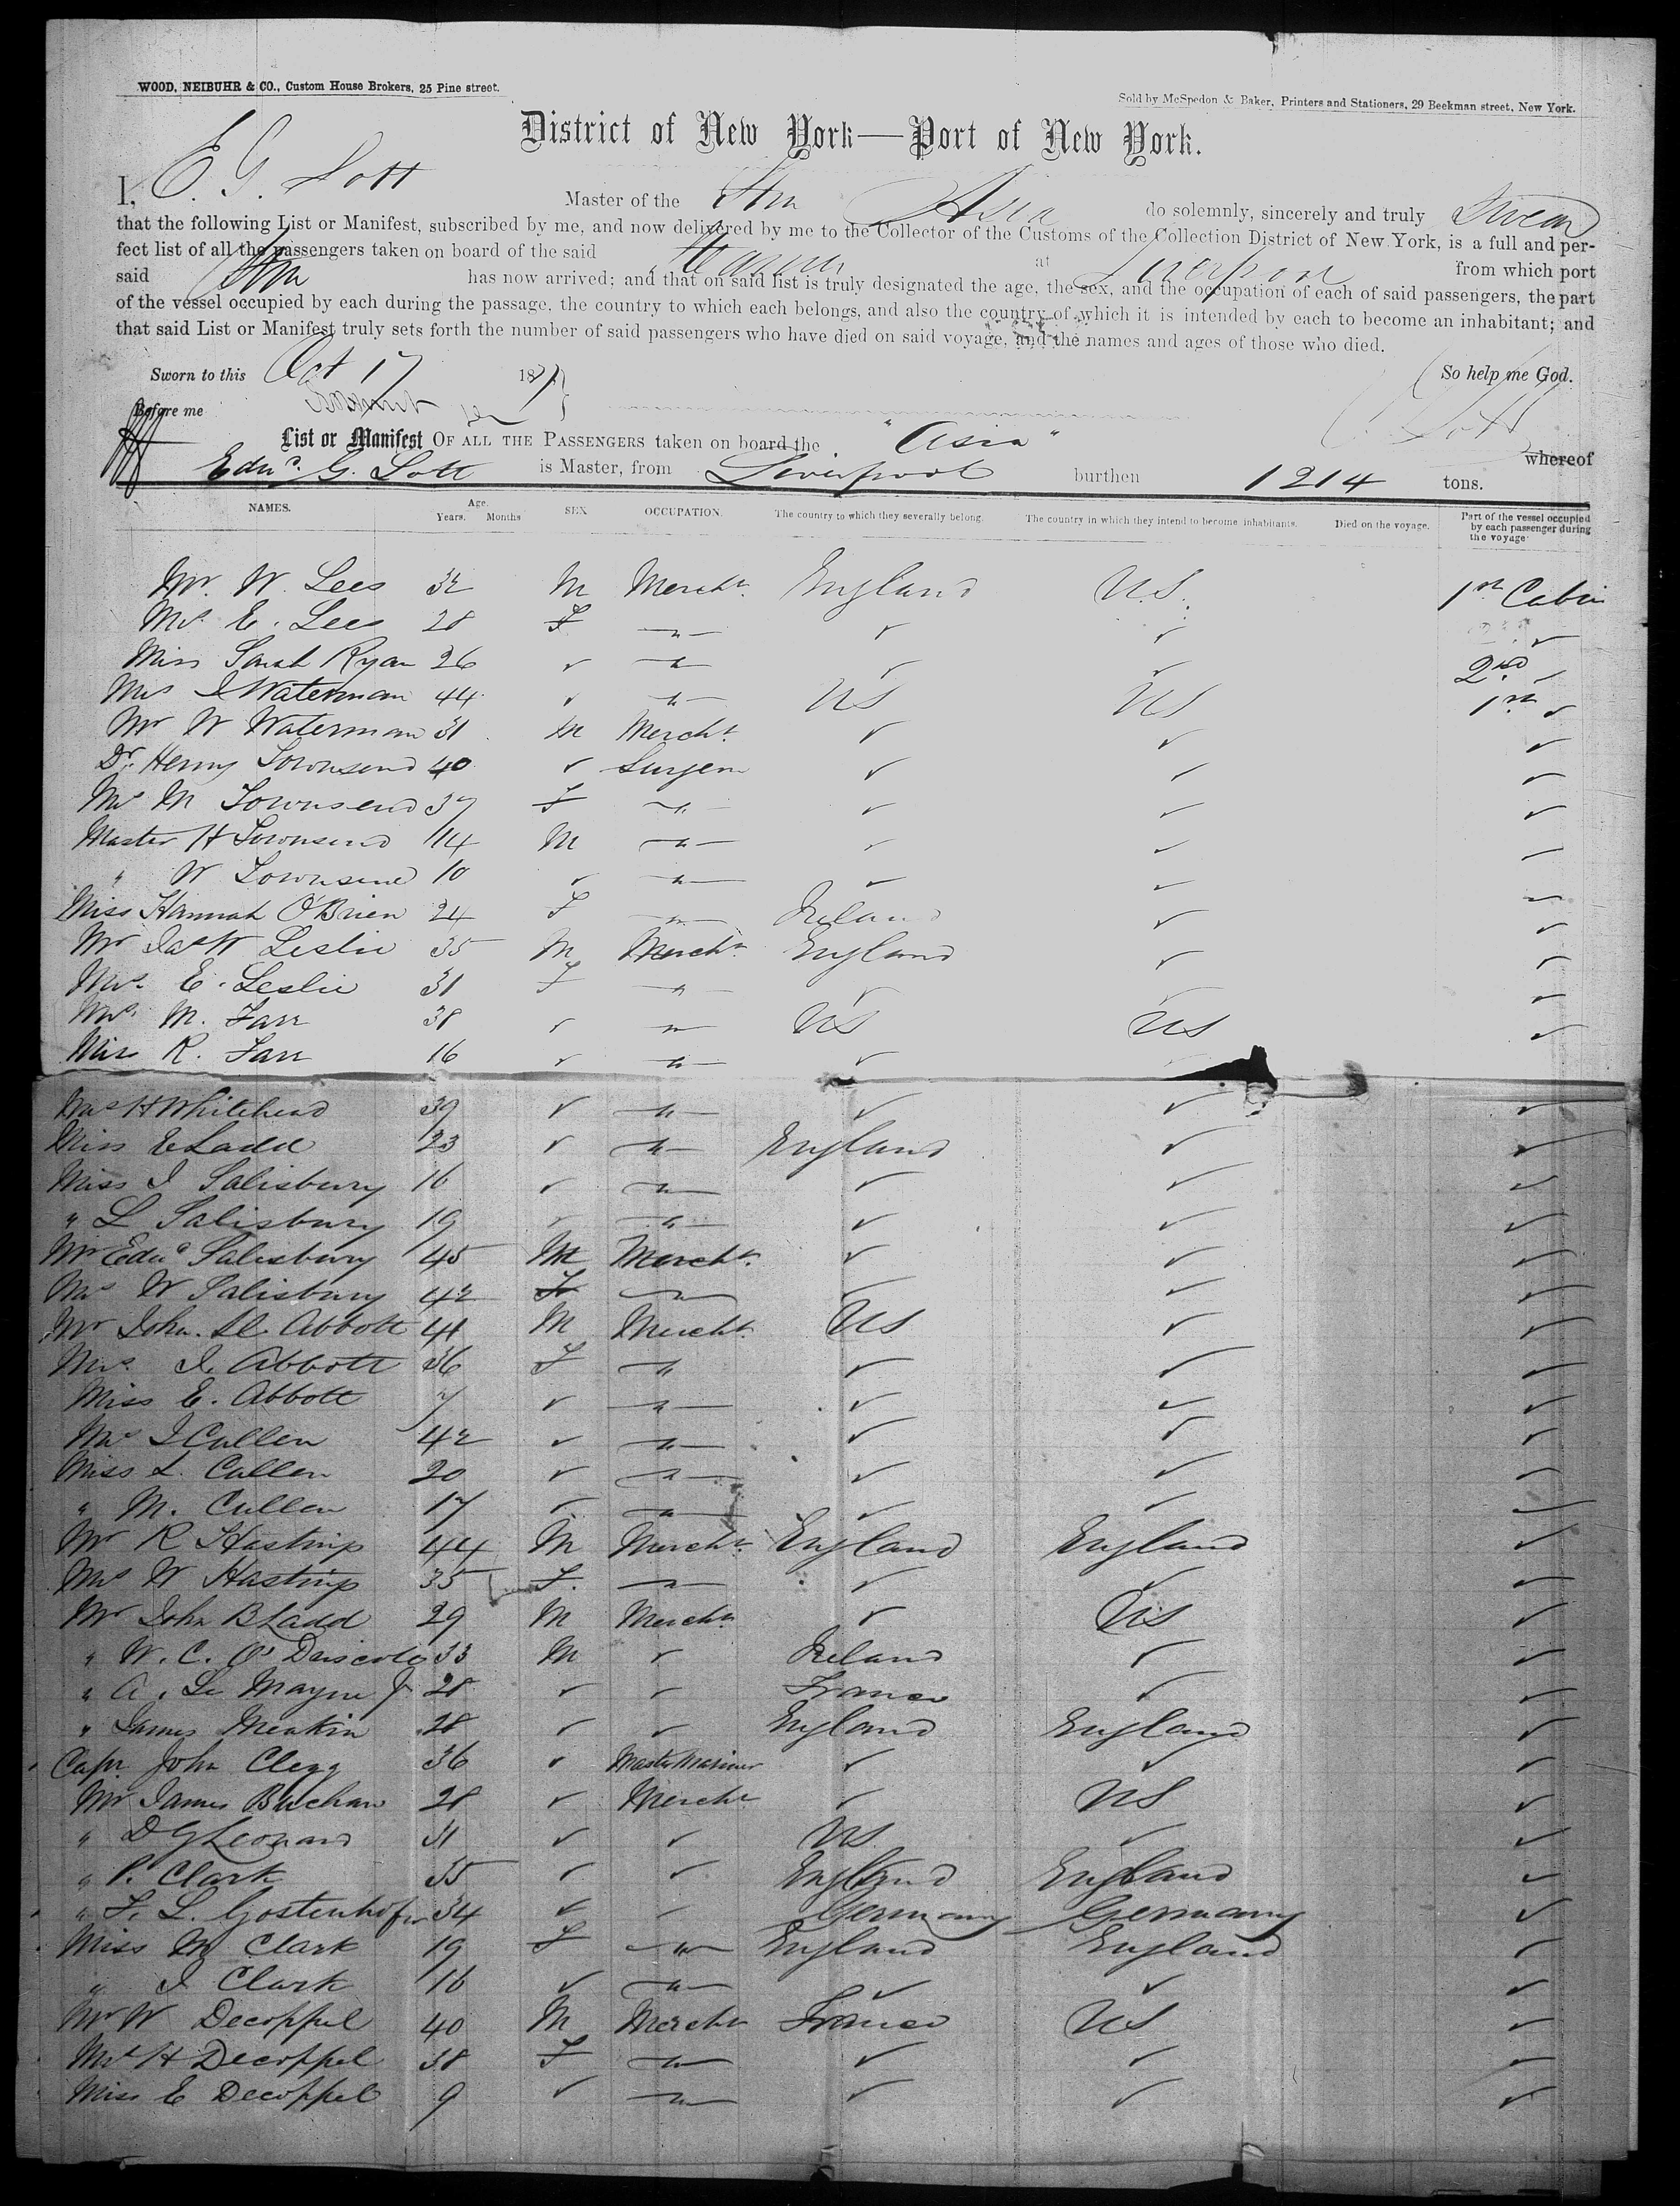 WOOD, NEIBUHR & CO., Custom House Brokers, 25 Pine street.
Sold by McSpedon & Baker, Printers and Stationers, 29 Beekman street, New York.
District of New York—Port of New York.
I, E. G. Lott Master of the Str Asia do solemnly, sincerely and truly Swear
that the following List or Manifest, subscribed by me, and now delivered by me to the Collector of the Customs of the Collection District of New York, is a full and per-
fect list of all the passengers taken on board of the said Steamer at Liverpool from which port
said Str has now arrived; and that on said list is truly designated the age, the sex, and the occupation of each of said passengers, the part
of the vessel occupied by each during the passage, the country to which each belongs, and also the country of which it is intended by each to become an inhabitant; and
that said List or Manifest truly sets forth the number of said passengers who have died on said voyage, and the names and ages of those who died.
Sworn to this Oct 17 185 So help me God.
Before me E G Lott
List or Manifest OF ALL THE PASSENGERS taken on board the "Asia" whereof
Edwd. G. Lott is Master, from Liverpool burthen 1214 tons.
NAMES. Age. Years. Months SEX OCCUPATION. The country to which they severally belong. The country in which they intend to become inhabitants. Died on the voyage. Part of the vessel occupied by each passenger during the voyage
Mr. W. Lees 32 M Mercht. England U.S. 1st Cabin
Mrs. E. Lees 28 F —"— ✓ ✓ ✓
Miss Sarah Ryan 26 ✓ —"— ✓ ✓ 2nd ✓
Mrs I Waterman 44 ✓ —"— US US 1st ✓
Mr W Waterman 31 M Mercht. ✓ ✓ ✓
Dr. Henry Townsend 40 ✓ Surgeon ✓ ✓ ✓
Mrs M Townsend 37 F —"— ✓ ✓ ✓
Master H Townsend 14 M —"— ✓ ✓ ✓
" W Townsend 10 ✓ —"— ✓ ✓ ✓
Miss Hannah O'Brien 24 F —"— Ireland ✓ ✓
Mr Jas W Leslie 35 M Mercht. England ✓ ✓
Mrs. E. Leslie 31 F —"— ✓ ✓ ✓
Mrs. M. Farr 38 ✓ —"— US US ✓
Miss R. Farr 16 ✓ —"— ✓
Mrs H Whitehead 39 ✓ —"— ✓ ✓ ✓
Miss E Ladd 23 ✓ —"— England ✓ ✓
Miss I Salisbury 16 ✓ —"— ✓ ✓ ✓
" L Salisbury 19 ✓ —"— ✓ ✓ ✓
Mr Edwd Salisbury 45 M Mercht. ✓ ✓ ✓
Mrs W Salisbury 42 F —"— ✓ ✓ ✓
Mr John. Abbott 41 M Mercht. US ✓ ✓
Mrs. I. Abbott 36 F —"— ✓ ✓ ✓
Miss E. Abbott 7 ✓ —"— ✓ ✓ ✓
Mrs I Cullen 42 ✓ —"— ✓ ✓ ✓
Miss L. Cullen 20 ✓ —"— ✓ ✓ ✓
" M. Cullen 17 ✓ —"— ✓ ✓ ✓
Mr R Hastings 44 M Mercht. England England ✓
Mrs W Hastings 35 F. —"— ✓ ✓ ✓
Mr John B Ladd 29 M Mercht. ✓ US ✓
" W. C. O'Driscoll 33 M ✓ Ireland ✓ ✓
" A. Le Mayne Jr 28 ✓ ✓ France ✓ ✓
" James Meakin 28 ✓ ✓ England England ✓
Capt. John Clegg 36 ✓ Master Mariner ✓ ✓ ✓
Mr James Buchan 28 ✓ Mercht. ✓ US ✓
" D G Leonard 31 ✓ ✓ US ✓ ✓
" P. Clark 35 ✓ ✓ England England ✓
" F. L. Gostenhofer 34 ✓ ✓ Germany Germany ✓
Miss M Clark 19 F —"— England England ✓
" I Clark 16 ✓ —"— ✓ ✓ ✓
Mr W Decoppel 40 M Mercht France US ✓
Mrs H Decoppel 38 F —"— ✓ ✓ ✓
Miss E Decoppel 9 ✓ —"— ✓ ✓ ✓